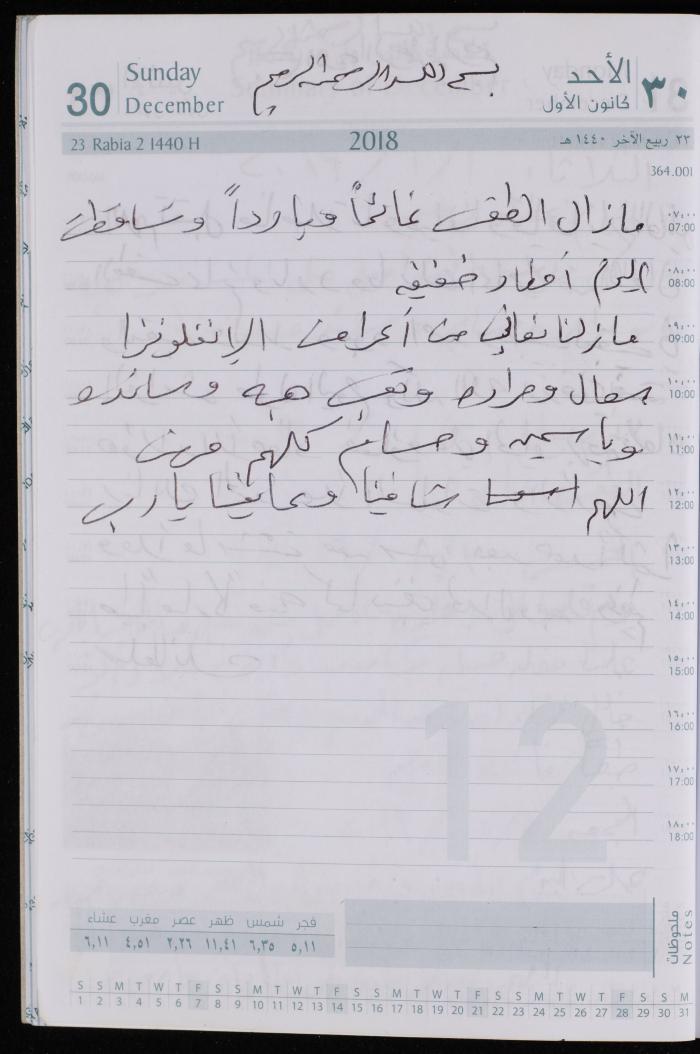 30
Sunday
December
بسم الله الرحمن الرحيم
الأحد
كانون الأول
٣٠
23 Rabia 2 1440 H
2018
٢٣ ربيع الآخر ١٤٤٠ هـ
364.001
مازال الطقس غائماً وبارداً وتساقطت
٠٧:٠٠
07:00
اليوم أمطار خفيفه
٠٨:٠٠
08:00
مازلنا نعاني من أعراض الإنفلونزا
٠٩:٠٠
09:00
سعال وحراره وتعب هبه وسانده
١٠:٠٠
10:00
وياسمين وحسام كلهم مرضى
١١:٠٠
11:00
اللهم شافينا وعافينا يارب
١٢:٠٠
12:00
١٣:٠٠
13:00
١٤:٠٠
14:00
١٥:٠٠
15:00
١٦:٠٠
16:00
١٧:٠٠
17:00
١٨:٠٠
18:00
12
فجر شمس ظهر عصر مغرب عشاء
٥,١١ ٦,٣٥ ١١,٤١ ٢,٢٦ ٤,٥١ ٦,١١
ملحوظات
Notes
S S M T W T F S S M T W T F S S M T W T F S S M T W T F S S M
1 2 3 4 5 6 7 8 9 10 11 12 13 14 15 16 17 18 19 20 21 22 23 24 25 26 27 28 29 30 31